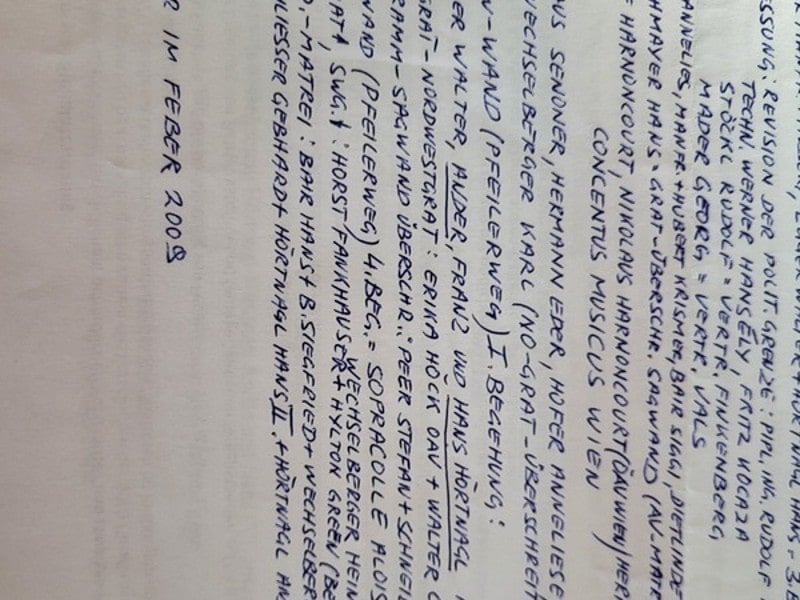 ESSUNG: REVISION DER POLIT. GRENZE: DIPL. ING. RUDOLF
TECHN. WERNER HANSÉLY, FRITZ KOCAZA
STÖCKL RUDOLF = VERTR. FINKENBERG,
MADER GEORG = VERTR. VALS
ANNELIES, MANFR. + HUBERT KRISMER, BAIR SIGGI, DIETLINDE
HMAYER HANS = GRAT-ÜBERSCHR. SAGWAND (AV-MATR
HARNONCOURT, NIKOLAUS HARNONCOURT (ÖAV WIEN) HER
CONCENTUS MUSICUS WIEN
US SENONER, HERMANN EDER, HOFER ANNELIESE
WECHSELBERGER KARL (NO-GRAT-ÜBERSCHREIT
W-WAND (PFEILERWEG) I. BEGEHUNG:
ER WALTER, ANDER FRANZ UND HANS HÖRTNAGL
GRAT-NORDWESTGRAT: ERIKA HÖCK ÖAV + WALTER
RAMM-SAGWAND ÜBERSCHR.: PEER STEFAN + SCHNEI
WAND (PFEILERWEG) 4. BEG. = SOPRACOLLE ALOIS
WECHSELBERGER HEIN
AT, SWG.: HORST FANKHAUSER + HYLTON GREEN (BE
.-MATREI: BAIR HANS + B. SIEGFRIED + WECHSELBER
LIESSER GEBHARD + HÖRTNAGL HANS II. + HÖRTNAGL AN
R IM FEBER 2009